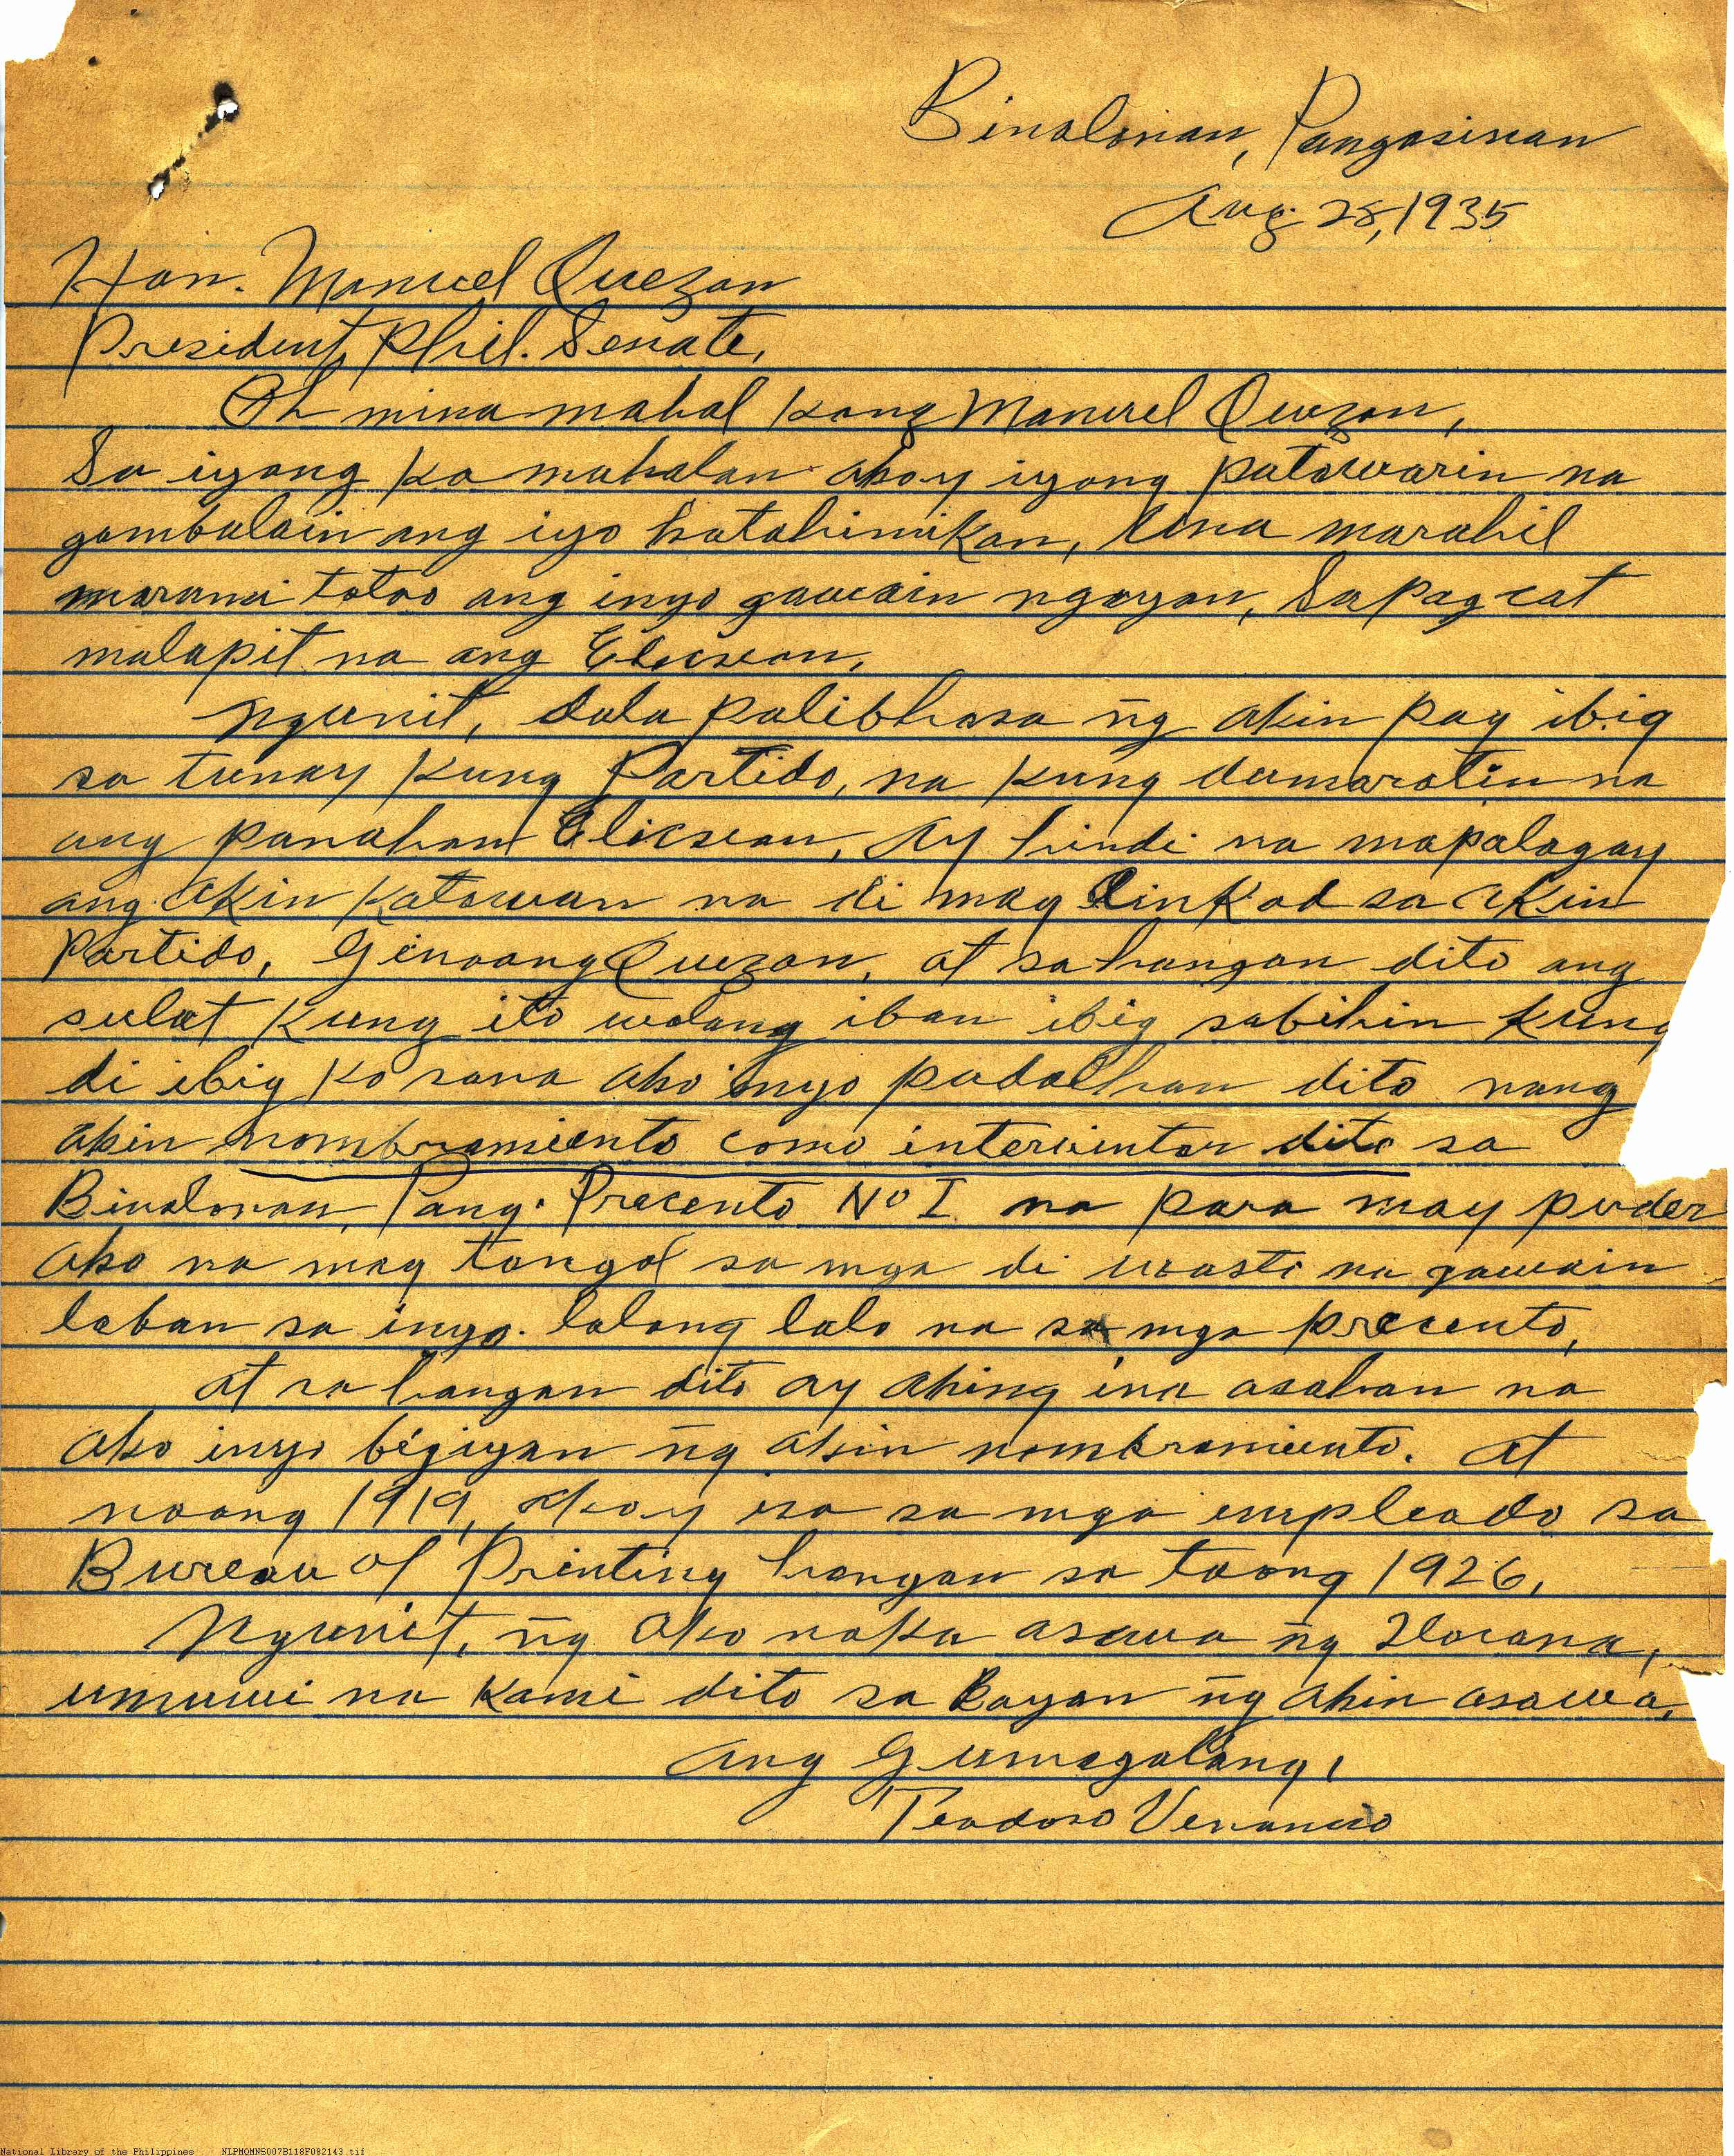 Binalonan, Pangasinan
Aug. 28, 1935
Hon. Manuel Quezon
President, Phil. Senate,
Oh mina mahal kong Manuel Quezon,
Sa iyong ka mahalan ako'y iyong patawarin na
gambalain ang iyo katahimikan, Una marahil
marami totoo ang inyo gawain ngayon, Sapagcat
malapit na ang Elecsion.
Ngunit, dala palibhasa ng̃ akin pag ibig
sa tunay kung Partido, na kung dumaratin na
ang panahon Elicsion, Ay hindi na mapalagay
ang akin katawan na di mag linkod sa akin
Partido, Ginoong Quezon, at sa hangan dito ang
sulat kung ito walang iban ibig sabihin kung
di ibig ko sana ako inyo padalhan dito nang
akin nombramiento como interventor dito sa
Binalonan, Pang. Precento No I na para may puder
ako na mag tangol sa mga di wasto na gawain
laban sa inyo. lalong lalo na sa mga precento,
at sa hangan dito ay aking ina asahan na
ako inyo bigiyan ng̃ akin nombramiento. At
noong 1919, ako'y isa sa mga empleado sa
Bureau of Printing hangan sa taong 1926.
Ngunit, ng̃ ako naka asawa ng̃ Ilocana,
umuwi na kami dito sa Bayan ng̃ akin asawa.
Ang Gumagalang,
Teodoro Venancio
National Library of the Philippines NLPMQMNS007B118F082143.tif